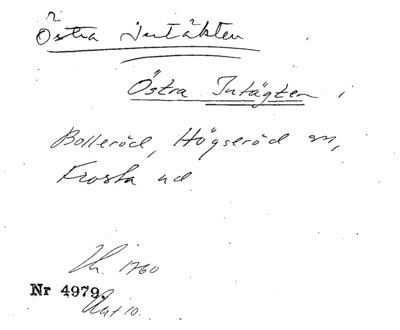 Östra intäkten
Östra Intägten i
Bolleröd, Högseröd sn,
Frosta hd
1760
Nr 4979.
Akt 10.